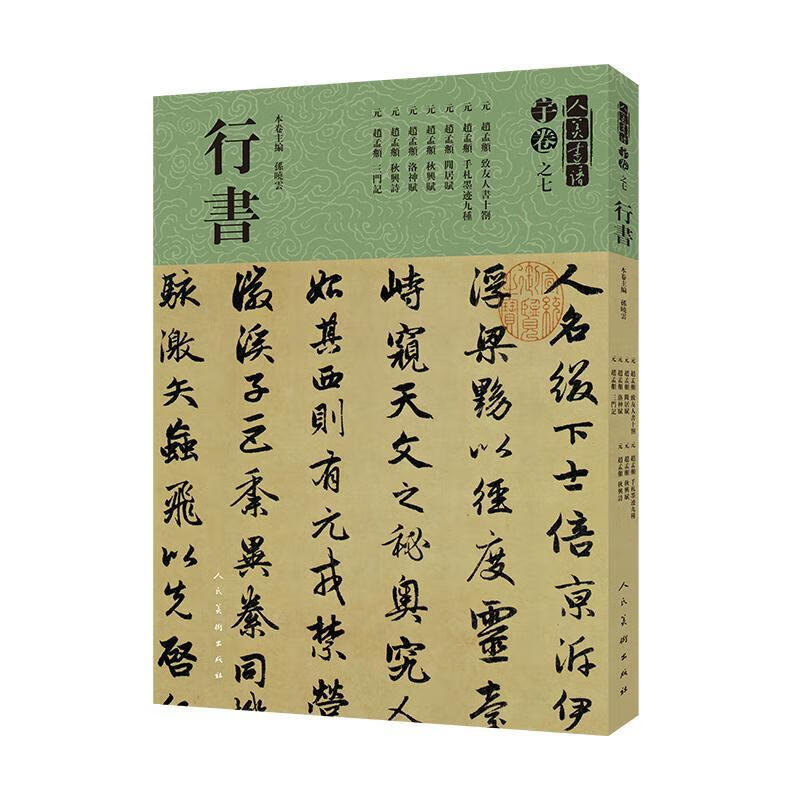 人美書譜
字卷 之七
元 趙孟頫 致友人書十劄
元 趙孟頫 手札墨迹九種
元 趙孟頫 閒居賦
元 趙孟頫 秋興賦
元 趙孟頫 洛神賦
元 趙孟頫 秋興詩
元 趙孟頫 三門記
本卷主編 孫曉雲
行書
人名綴下士倍京泝伊
浮梁黝以徑度靈臺
峙窺天文之秘奧究人
始其西則有元戎禁營
徽溪子巨黍異絭同
駭激矢蝱飛以先啓
宣統御覽之寶
人民美術出版社
人美書譜 字卷 之七
行書
本卷主編 孫曉雲
元 趙孟頫 致友人書十劄
元 趙孟頫 手札墨迹九種
元 趙孟頫 閒居賦
元 趙孟頫 秋興賦
元 趙孟頫 洛神賦
元 趙孟頫 秋興詩
元 趙孟頫 三門記
人民美術出版社